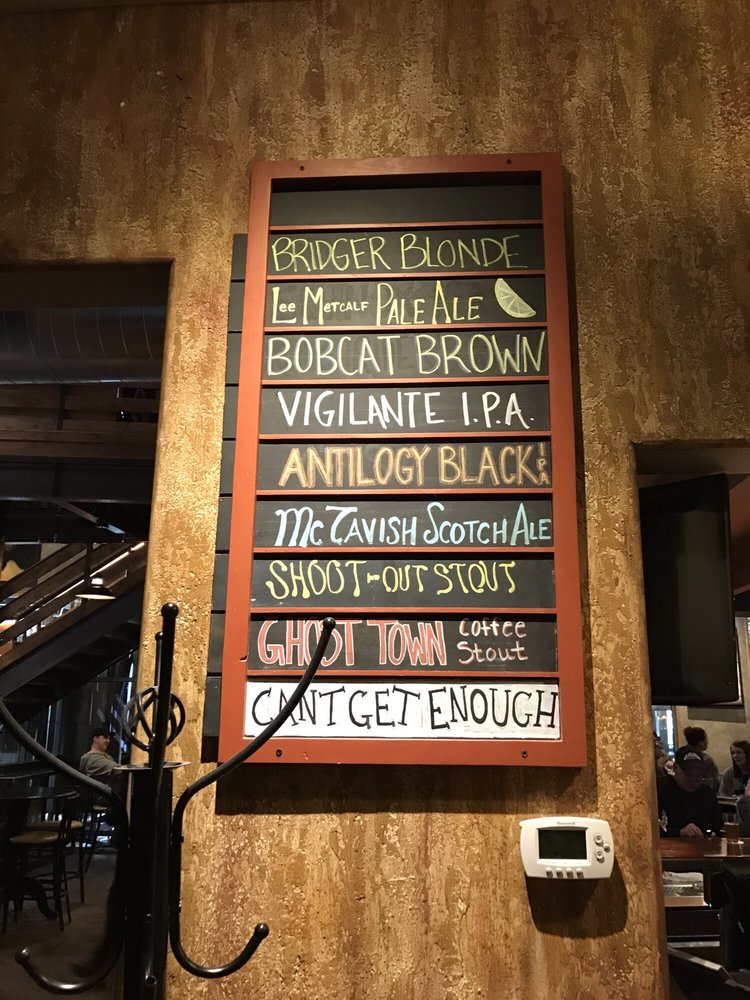 BRIDGER BLONDE
Lee METCALF PALE ALE
BOBCAT BROWN
VIGILANTE I.P.A.
ANTILOGY BLACK IPA
McTAVISH SCOTCH ALE
SHOOT-OUT STOUT
GHOST TOWN Coffee
Stout
CANT GET ENOUGH
Honeywell